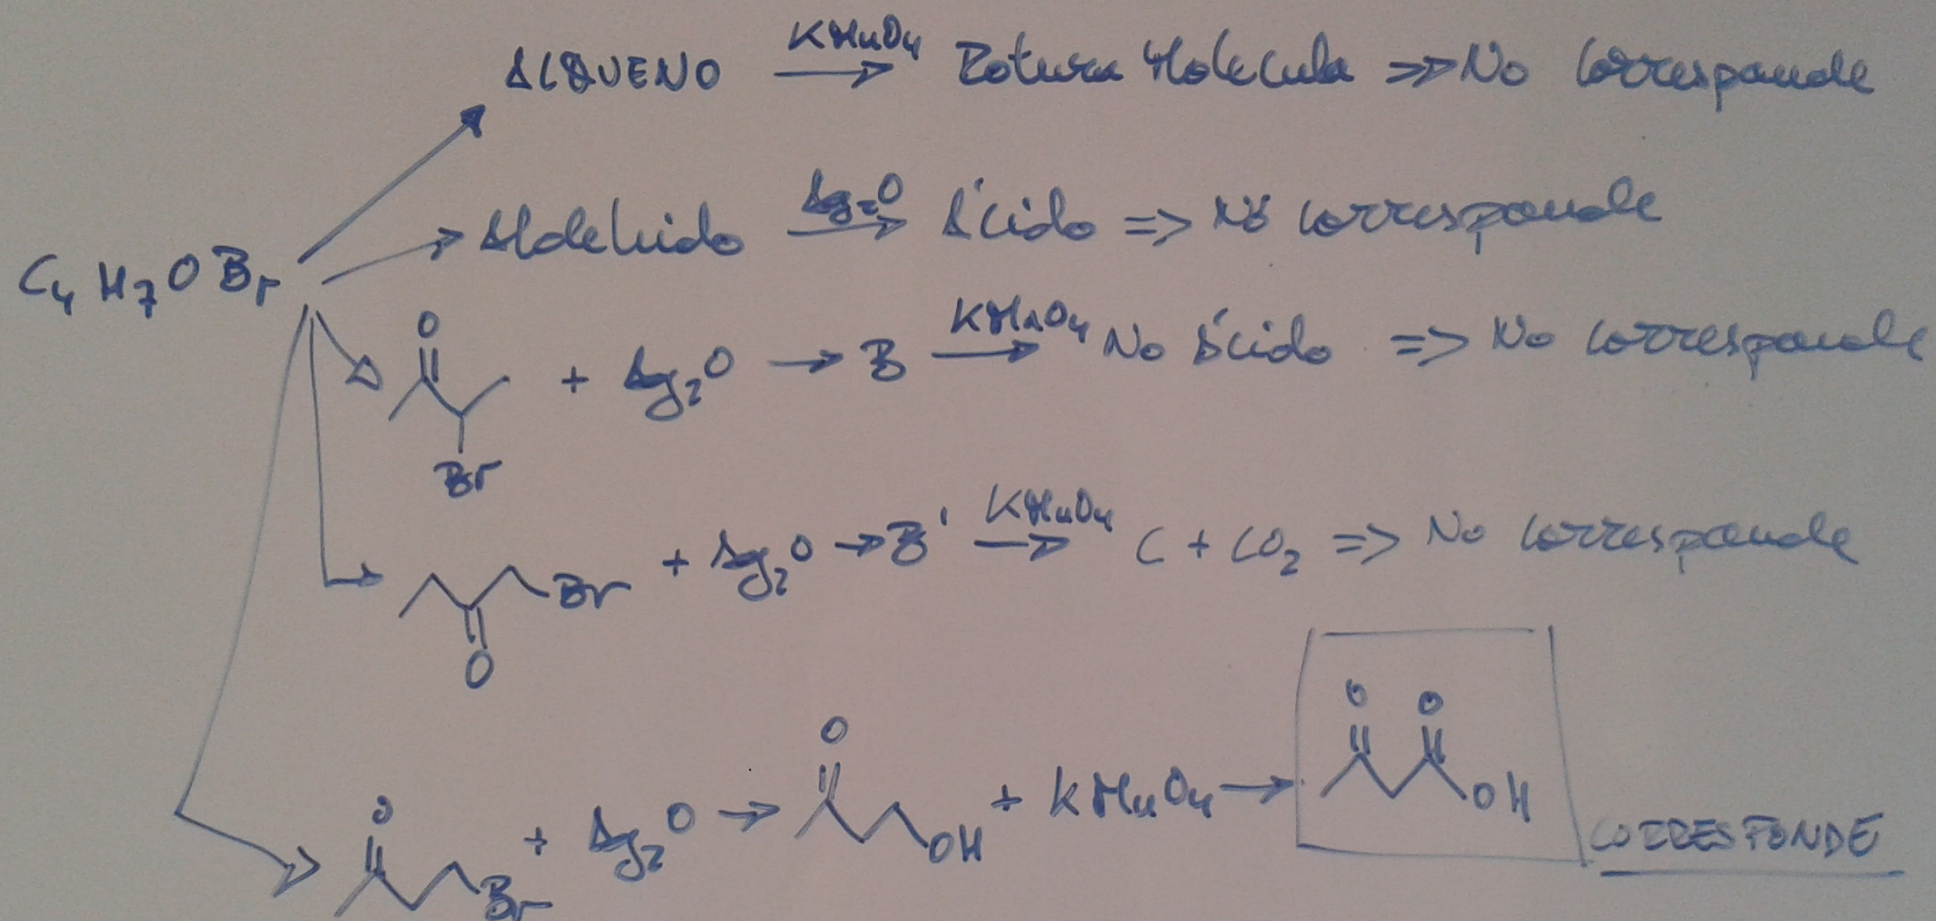 ALQUENO KMnO4 → Rotura Molecula ⇒ No corresponde
Aldehido Ag2O → Ácido => No corresponde
C4H7OBr
O
+ Ag2O → B KMnO4 → No Ácido => No corresponde
Br
+ Ag2O → B' KMnO4 → C + CO2 => No corresponde
Br
O
O O O
+ Ag2O → OH + KMnO4 → OH
O
Br
CORRESPONDE